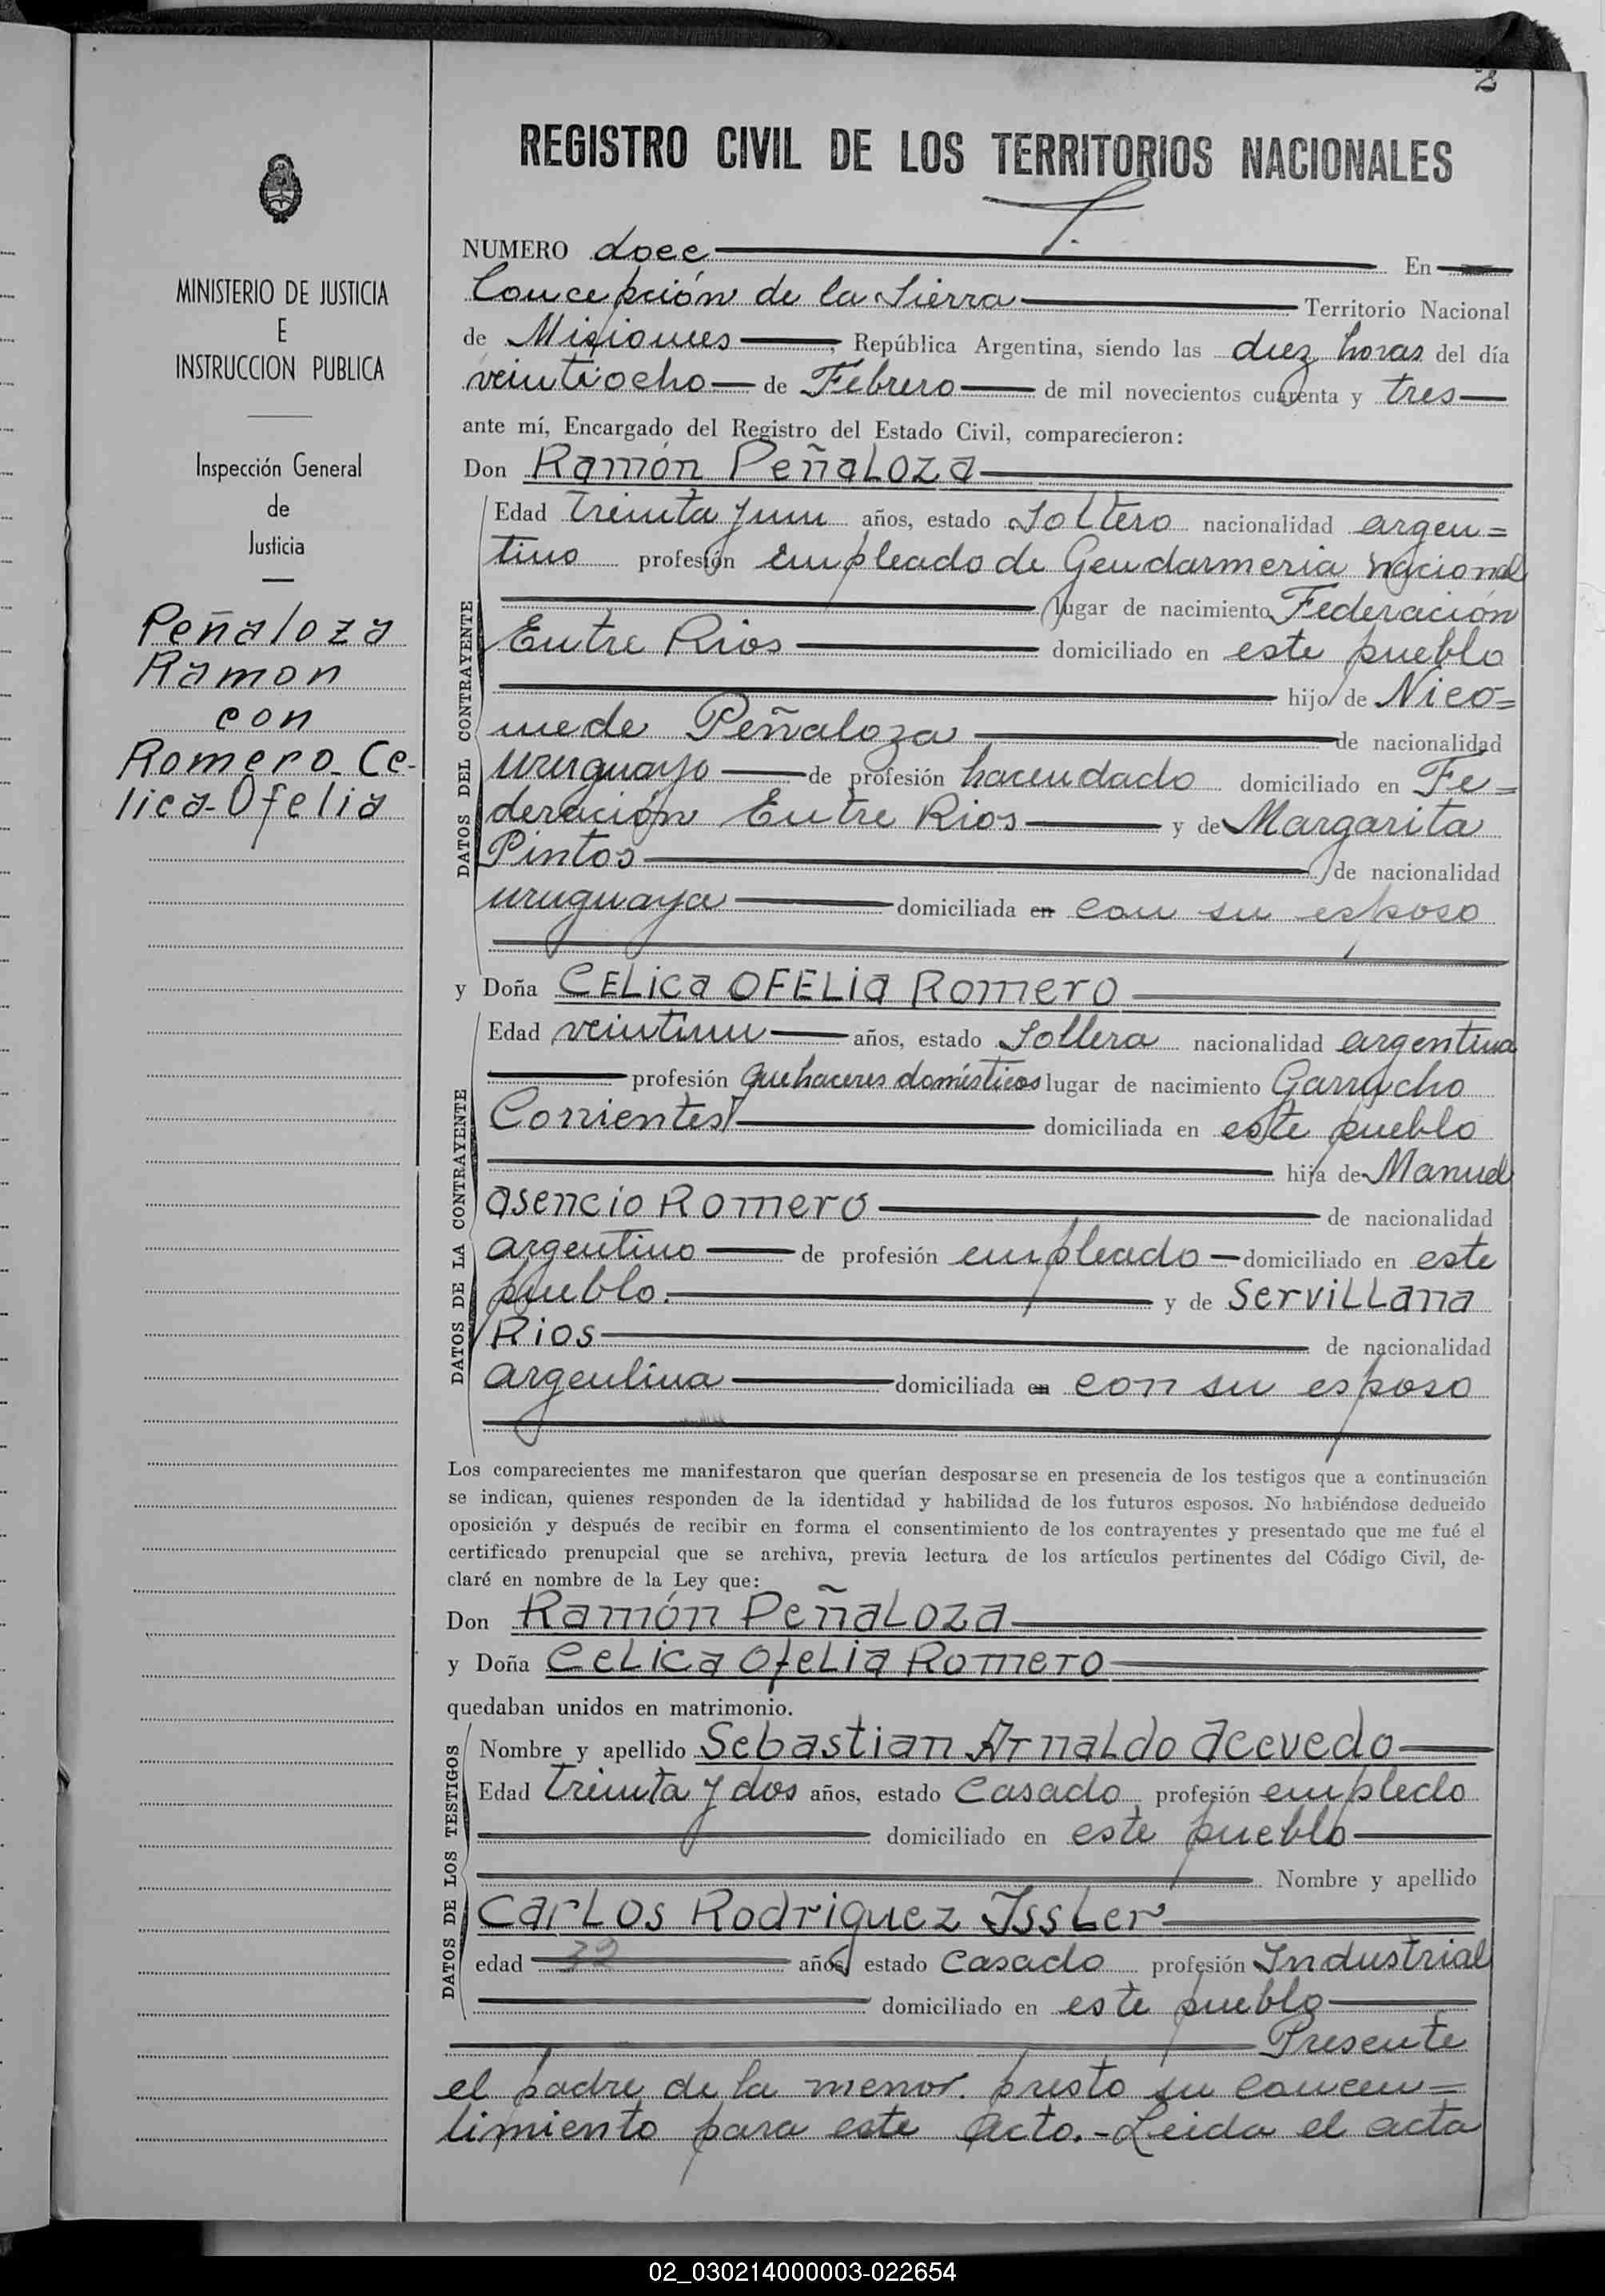 2
REGISTRO CIVIL DE LOS TERRITORIOS NACIONALES
MINISTERIO DE JUSTICIA
E
INSTRUCCION PUBLICA
Inspección General
de
Justicia
Peñaloza
Ramon
con
Romero Ce-
lica-Ofelia
NUMERO doce En
Concepción de la Sierra Territorio Nacional
de Misiones, República Argentina, siendo las diez horas del día
veintiocho de Febrero de mil novecientos cuarenta y tres
ante mí, Encargado del Registro del Estado Civil, comparecieron:
Don Ramón Peñaloza
DATOS DEL CONTRAYENTE
Edad treinta y un años, estado Soltero nacionalidad argen=
tino profesión empleado de Gendarmeria nacional
lugar de nacimiento Federación
Entre Rios domiciliado en este pueblo
hijo de Nico=
mede Peñaloza de nacionalidad
uruguayo de profesión hacendado domiciliado en Fe=
deración Entre Rios y de Margarita
Pintos de nacionalidad
uruguaya domiciliada en con su esposo
y Doña CELica OFELia Romero
DATOS DE LA CONTRAYENTE
Edad veintiun años, estado Soltera nacionalidad argentina
profesión quehaceres domésticos lugar de nacimiento Garrucho
Corrientes domiciliada en este pueblo
hija de Manuel
asencio Romero de nacionalidad
argentino de profesión empleado domiciliado en este
pueblo. y de Servillana
Rios de nacionalidad
argentina domiciliada en con su esposo
Los comparecientes me manifestaron que querían desposarse en presencia de los testigos que a continuación
se indican, quienes responden de la identidad y habilidad de los futuros esposos. No habiéndose deducido
oposición y después de recibir en forma el consentimiento de los contrayentes y presentado que me fué el
certificado prenupcial que se archiva, previa lectura de los artículos pertinentes del Código Civil, de-
claré en nombre de la Ley que:
Don Ramón Peñaloza
y Doña Celica Ofelia Romero
quedaban unidos en matrimonio.
DATOS DE LOS TESTIGOS
Nombre y apellido Sebastian Arnaldo acevedo
Edad treinta y dos años, estado Casado profesión empledo
domiciliado en este pueblo
Nombre y apellido
Carlos Rodriguez Issler
edad 32 años, estado Casado profesión Industrial
domiciliado en este pueblo
Presente
el padre de la menor. presto su concen=
timiento para este acto.-Leida el acta
02_030214000003-022654